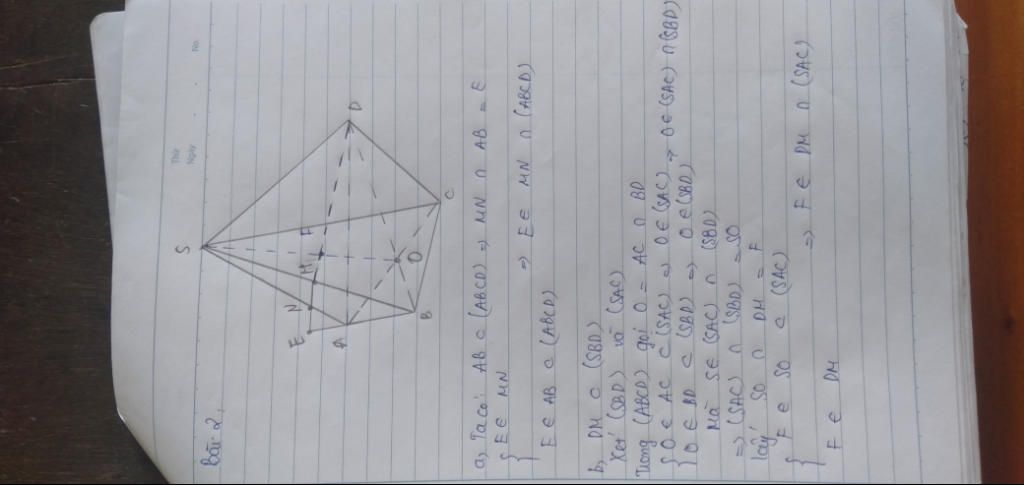 Thứ
Ngày
No.
Bài 2,
S
E
N
M
F
A
D
O
B
C
a, Ta có: AB ⊂ (ABCD) → MN ∩ AB = E
{ E ∈ MN
E ∈ AB ⊂ (ABCD) ⇒ E ∈ MN ∩ (ABCD)
b, DM ⊂ (SBD)
Xét (SBD) và (SAC)
Trong (ABCD) gọi O = AC ∩ BD
{ O ∈ AC ⊂ (SAC) ⇒ O ∈ (SAC) → O ∈ (SAC) ∩ (SBD)
O ∈ BD ⊂ (SBD) ⇒ O ∈ (SBD)
Mà S ∈ (SAC) ∩ (SBD)
⇒ (SAC) ∩ (SBD) = SO
lấy SO ∩ DM = F
{ F ∈ SO ⊂ (SAC)
F ∈ DM ⇒ F ∈ DM ∩ (SAC)